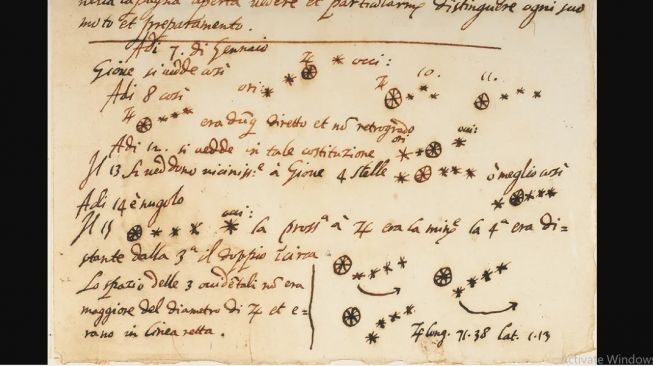 aperta vedere et particolarmᵉ distinguere ogni suo
moto et preparamento.
Adi 7. di Gennaio
Giove si vedde così ori: ♃ occi:
Adi 8 così ♃ 10. 11.
♃ era dũq diretto et nõ retrogrado
Adi 12. si vedde in tale costituzione ori: occi:
Il 13 si veddono vicinissᵉ à Giove 4 stelle ò meglio così
Adi 14 è nugolo
Il 15 occi: la prossᵃ à ♃ era la minᵉ la 4ᵃ era di-
stante dalla 3ᵃ il doppio ĩcirca
Lo spazio delle 3 occidẽtali nõ era
maggiore del diametro di ♃ et e-
rano in linea retta.
♃ long. 71.38 lat. 1.13
Activate Windows